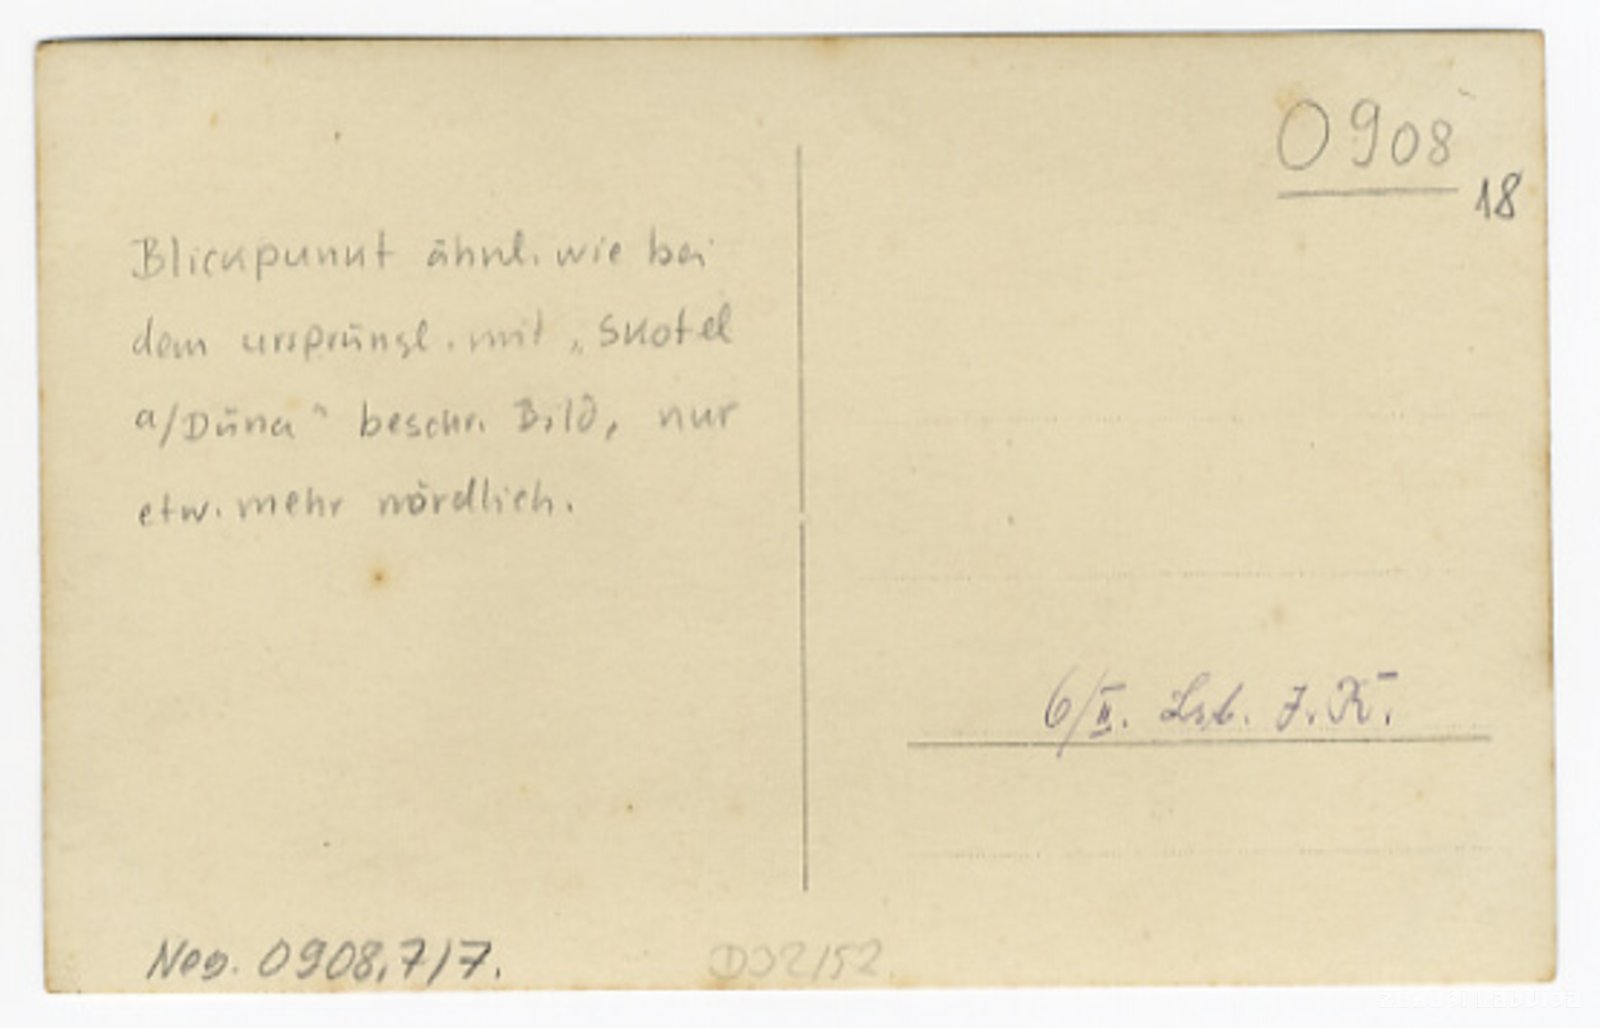 0908
18
Blickpunkt ähnl. wie bei
dem ursprüngl. mit „Skotel
a/Düna" beschr. Bild, nur
etw. mehr nördlich.
6/II. Lst. J. R.
Neg. 0908,7/7.